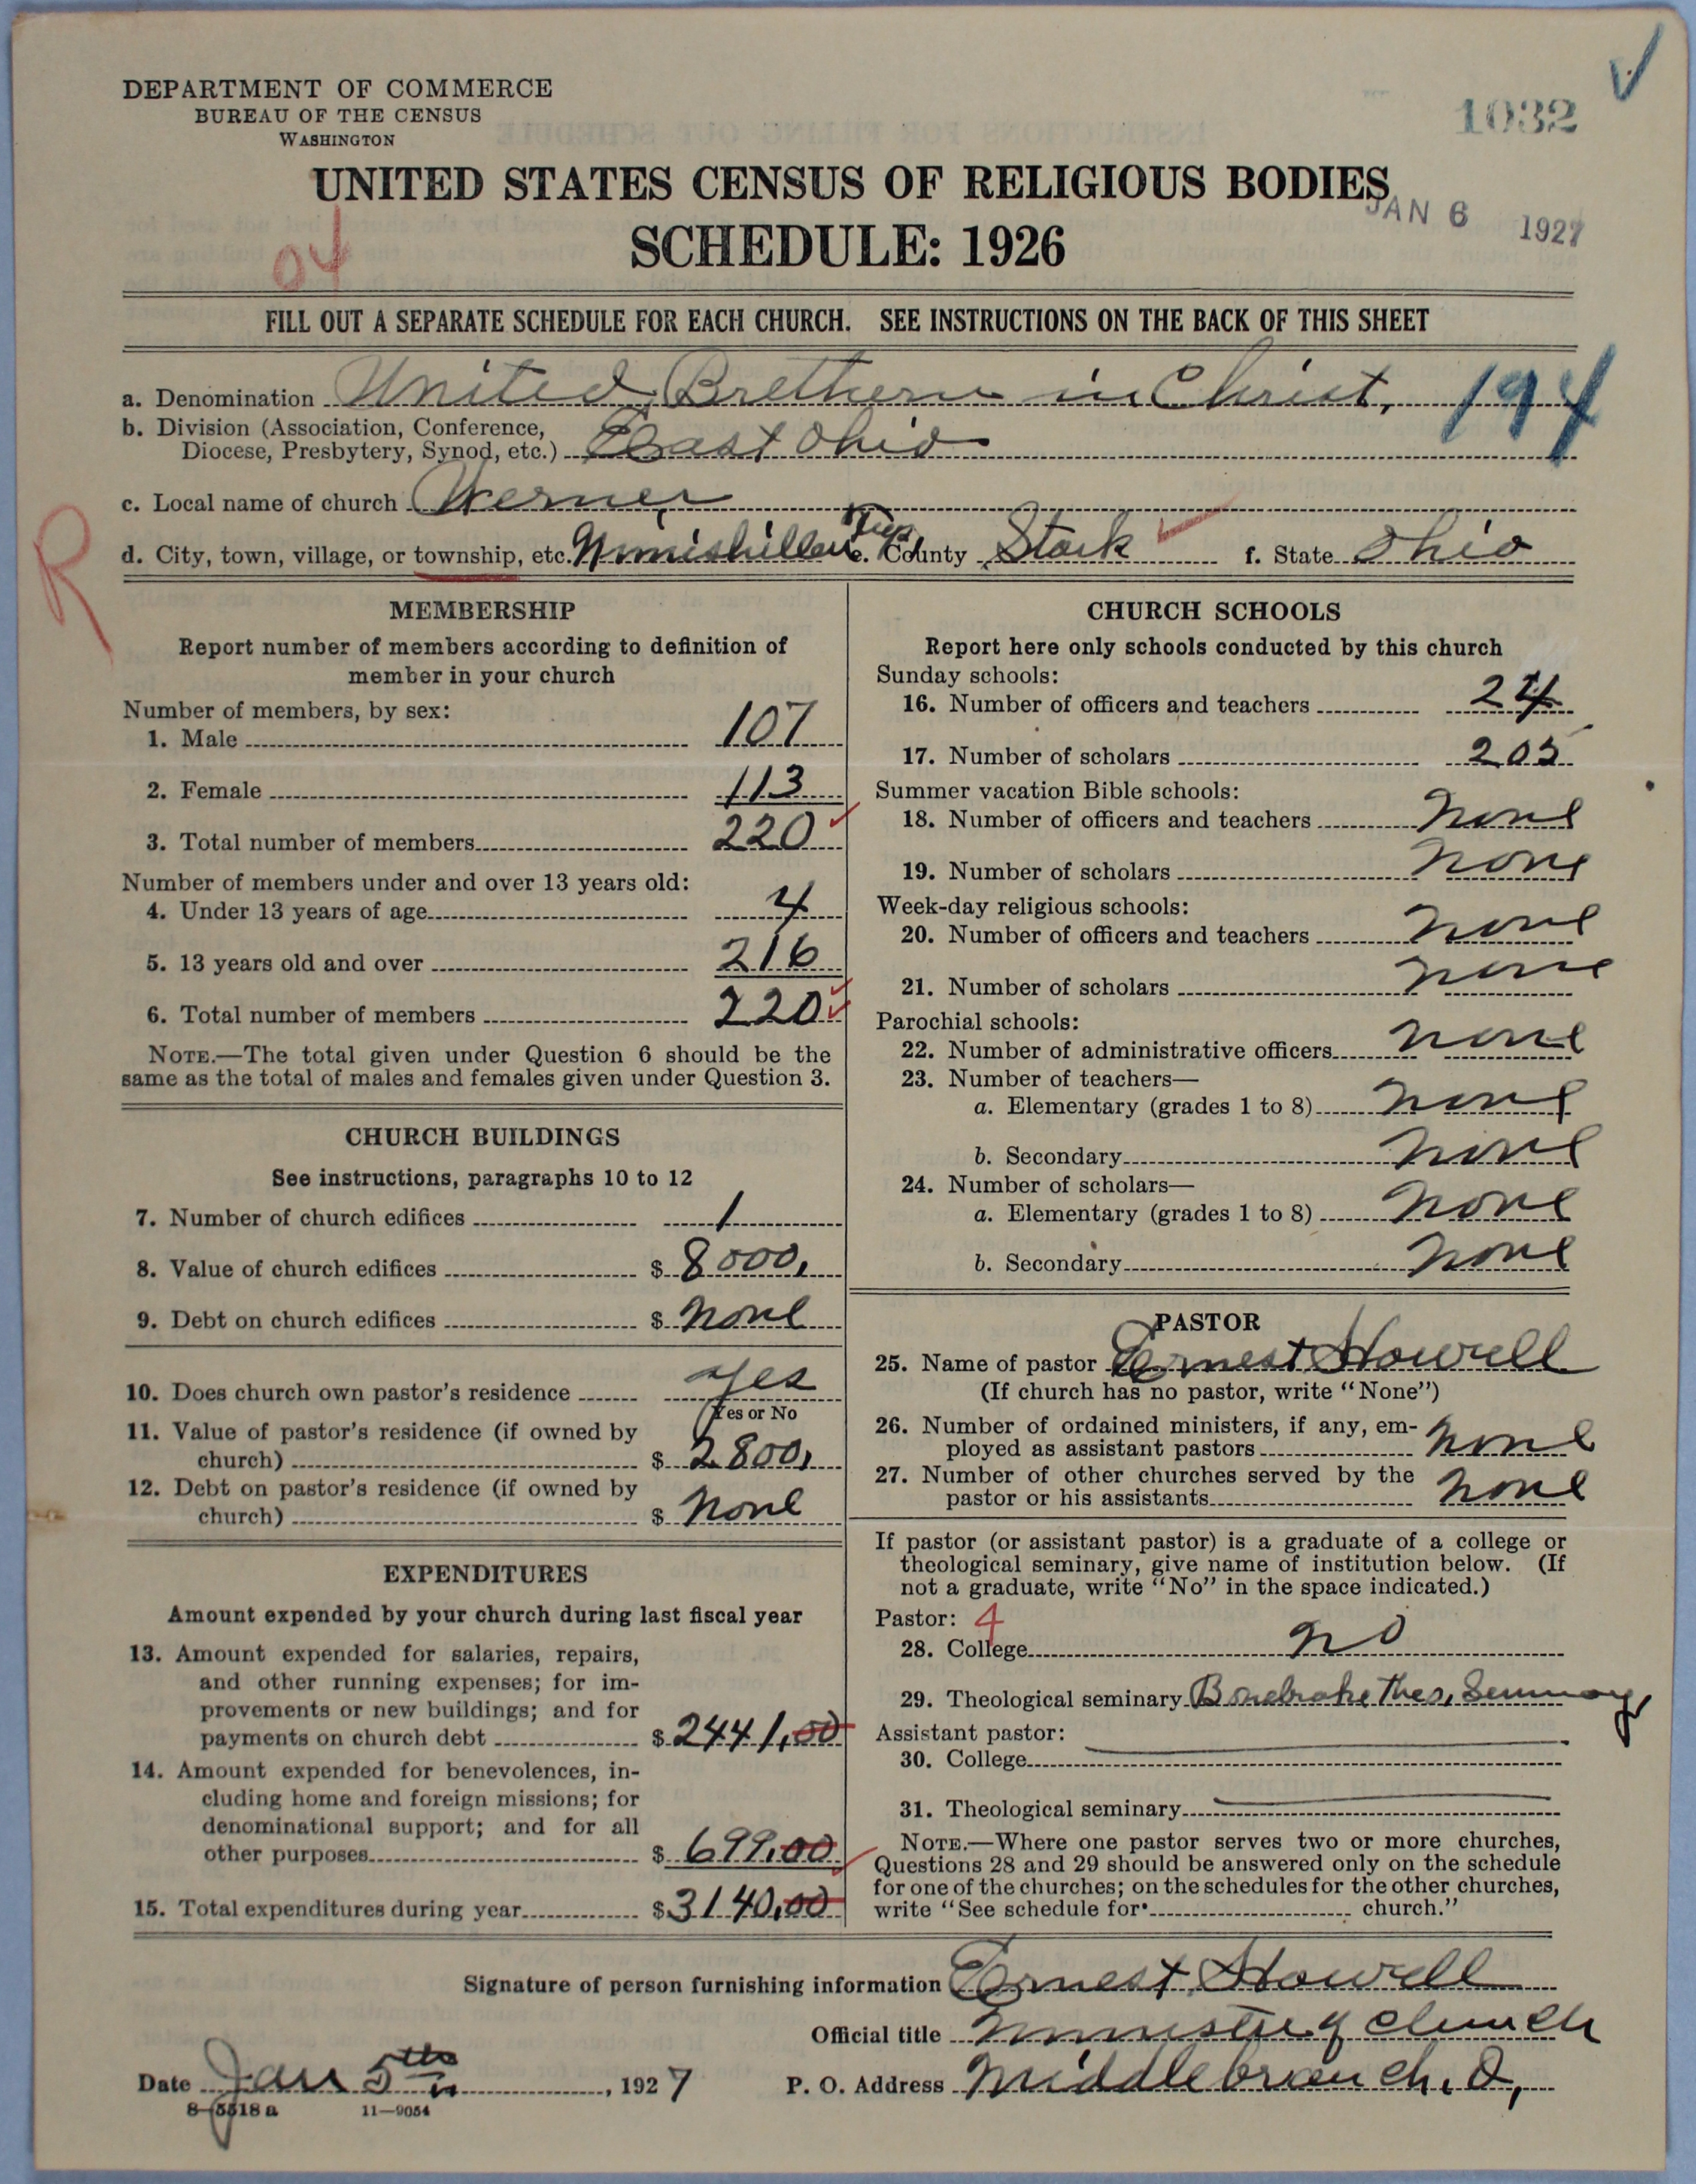 DEPARTMENT OF COMMERCE
BUREAU OF THE CENSUS
WASHINGTON
1032
UNITED STATES CENSUS OF RELIGIOUS BODIES
JAN 6 1927
SCHEDULE: 1926
04
FILL OUT A SEPARATE SCHEDULE FOR EACH CHURCH. SEE INSTRUCTIONS ON THE BACK OF THIS SHEET
a. Denomination United Brethern in Christ, 194
b. Division (Association, Conference,
Diocese, Presbytery, Synod, etc.) East Ohio
c. Local name of church Werner
R
d. City, town, village, or township, etc. Nimishillen Twp, e. County Stark f. State Ohio
MEMBERSHIP
Report number of members according to definition of
member in your church
Number of members, by sex:
1. Male 107
2. Female 113
3. Total number of members 220
Number of members under and over 13 years old:
4. Under 13 years of age 4
5. 13 years old and over 216
6. Total number of members 220
NOTE.—The total given under Question 6 should be the
same as the total of males and females given under Question 3.
CHURCH BUILDINGS
See instructions, paragraphs 10 to 12
7. Number of church edifices 1
8. Value of church edifices $ 8000,
9. Debt on church edifices $ none
10. Does church own pastor's residence yes
Yes or No
11. Value of pastor's residence (if owned by
church) $ 2800,
12. Debt on pastor's residence (if owned by
church) $ none
EXPENDITURES
Amount expended by your church during last fiscal year
13. Amount expended for salaries, repairs,
and other running expenses; for im-
provements or new buildings; and for
payments on church debt $ 2441,00
14. Amount expended for benevolences, in-
cluding home and foreign missions; for
denominational support; and for all
other purposes $ 699.00
15. Total expenditures during year $ 3140,00
CHURCH SCHOOLS
Report here only schools conducted by this church
Sunday schools:
16. Number of officers and teachers 24
17. Number of scholars 205
Summer vacation Bible schools:
18. Number of officers and teachers none
19. Number of scholars none
Week-day religious schools:
20. Number of officers and teachers none
21. Number of scholars none
Parochial schools:
22. Number of administrative officers none
23. Number of teachers—
a. Elementary (grades 1 to 8) none
b. Secondary none
24. Number of scholars—
a. Elementary (grades 1 to 8) none
b. Secondary none
PASTOR
25. Name of pastor Ernest Howell
(If church has no pastor, write "None")
26. Number of ordained ministers, if any, em-
ployed as assistant pastors none
27. Number of other churches served by the
pastor or his assistants none
If pastor (or assistant pastor) is a graduate of a college or
theological seminary, give name of institution below. (If
not a graduate, write "No" in the space indicated.)
Pastor: 4
28. College no
29. Theological seminary Bonebrake Theo, Seminary
Assistant pastor:
30. College
31. Theological seminary
NOTE.—Where one pastor serves two or more churches,
Questions 28 and 29 should be answered only on the schedule
for one of the churches; on the schedules for the other churches,
write "See schedule for church."
Signature of person furnishing information Ernest Howell
Official title Minister of church
Date Jan 5th, 1927 P. O. Address Middlebranch, O,
8-5518 a 11-9054